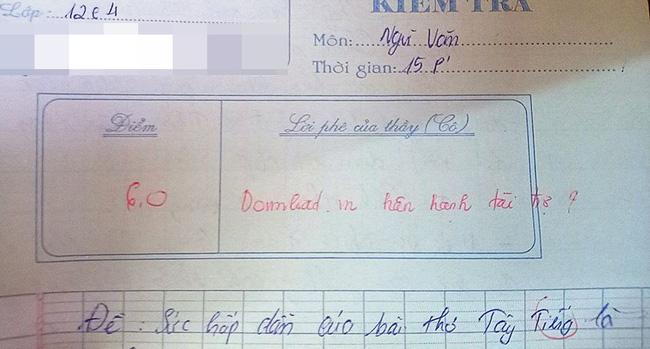 Lớp: 12C4
KIỂM TRA
Môn: Ngữ Văn
Thời gian: 15 P'
Điểm
Lời phê của thầy (Cô)
6,0
Download.vn hân hạnh tài trợ ?
Đề: Sức hấp dẫn của bài thơ Tây Tiếng là